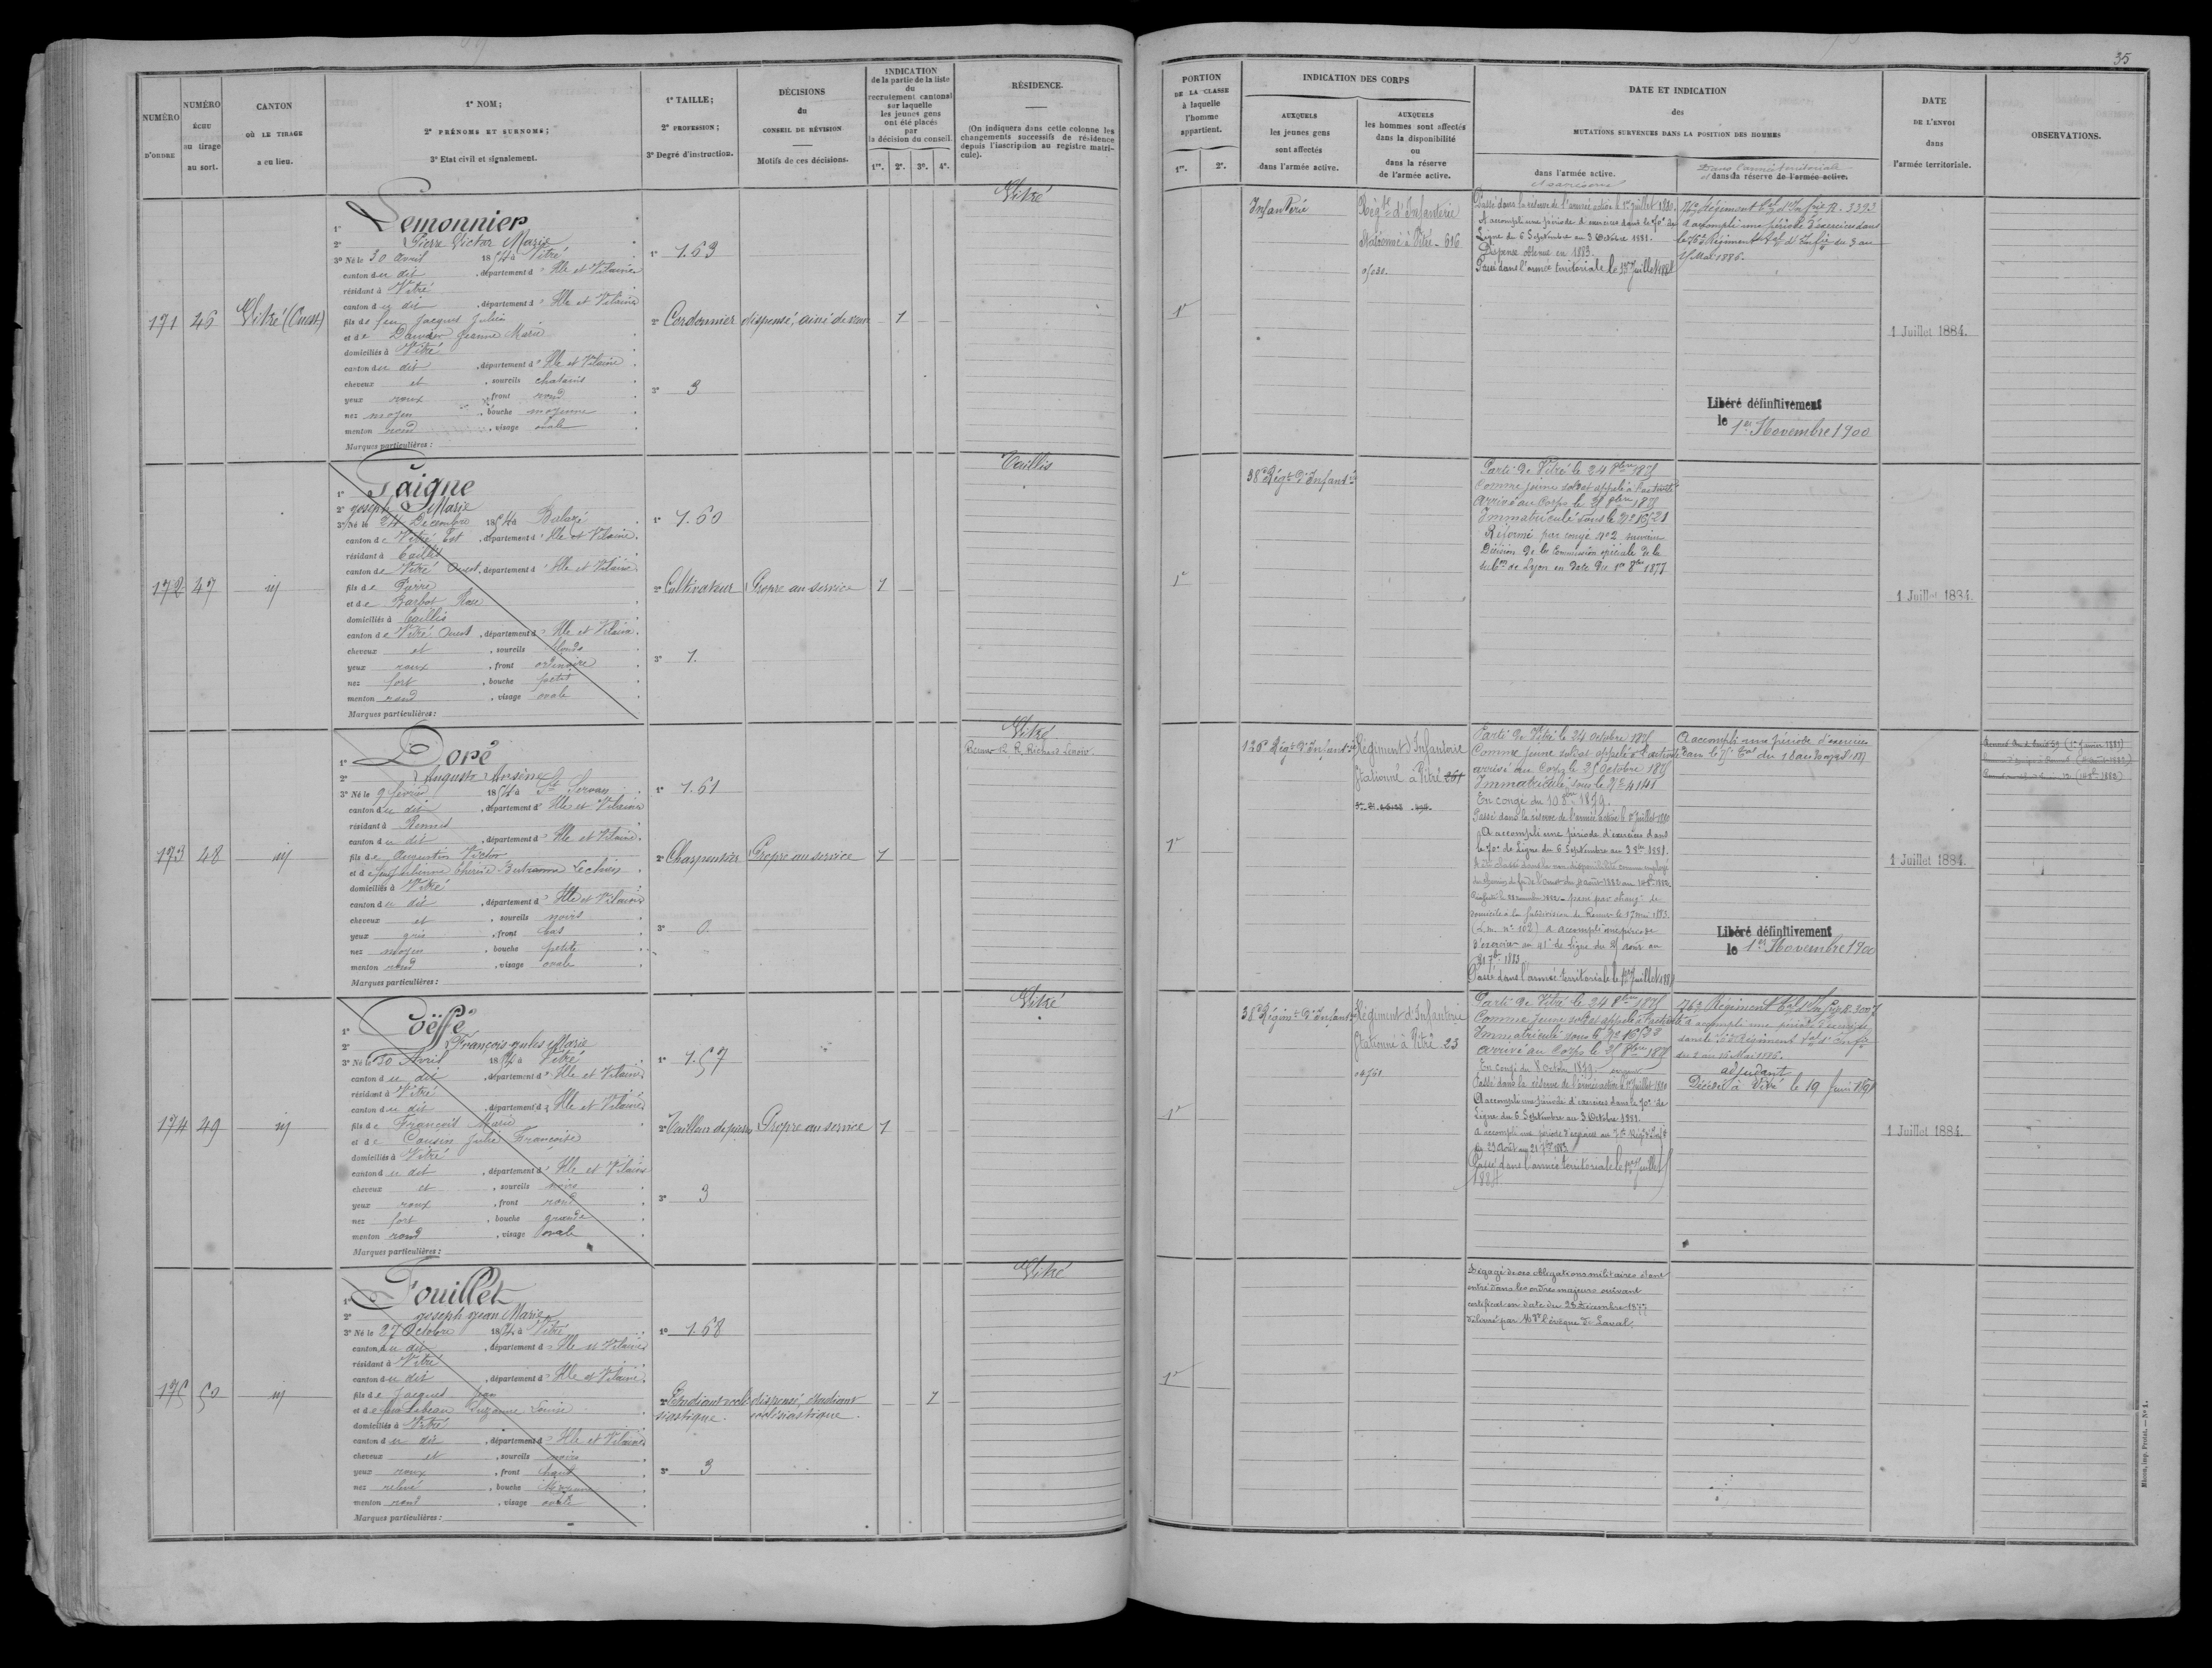 35
NUMÉRO D'ORDRE
NUMÉRO ÉCHU au tirage au sort.
CANTON OÙ LE TIRAGE a eu lieu.
1° NOM;
2° PRÉNOMS ET SURNOMS;
3° Etat civil et signalement.
1° TAILLE;
2° PROFESSION;
3° Degré d'instruction.
DÉCISIONS du CONSEIL DE RÉVISION
Motifs de ces décisions.
INDICATION de la partie de la liste du recrutement cantonal sur laquelle les jeunes gens ont été placés par la décision du conseil.
1re. 2e. 3e. 4e.
RÉSIDENCE.
(On indiquera dans cette colonne les changements successifs de résidence depuis l'inscription au registre matricule).
PORTION DE LA CLASSE à laquelle l'homme appartient.
1re. 2e.
INDICATION DES CORPS
AUXQUELS les jeunes gens sont affectés dans l'armée active.
AUXQUELS les hommes sont affectés dans la disponibilité ou dans la réserve de l'armée active.
DATE ET INDICATION des MUTATIONS SURVENUES DANS LA POSITION DES HOMMES
dans l'armée active.
Dans l'armée territoriale
dans la réserve de l'armée active.
DATE DE L'ENVOI dans l'armée territoriale.
OBSERVATIONS.
171 46 Vitré (Ouest)
1° Lemonnier
2° Pierre Victor Marie
3° Né le 30 Avril 1854 à Vitré
canton du dit, département d'Ille et Vilaine
résidant à Vitré
canton du dit, département d'Ille et Vilaine
fils de feu Jacques Julien
et de Jeanne Marie
domiciliés à Vitré
canton du dit, département d'Ille et Vilaine
cheveux et, sourcils chatains
yeux roux, front rond
nez moyen, bouche moyenne
menton rond, visage ovale
Marques particulières:
1° 1.63
2° Cordonnier
3° 3
dispensé, ainé de
1
Vitré
1re
Infanterie
Régt d'Infanterie
stationné à Vitré - 616
Passé dans la réserve de l'armée active le 1er juillet 1880.
A accompli une période d'exercices dans le 70e de
Ligne du 6 Septembre au 3 Octobre 1881.
Dispense obtenue en 1883.
Passé dans l'armée territoriale le 1er Juillet 1884
76e Régiment tal d'Infrie R. 3393
a accompli une période d'exercices dans
le 76e Régiment tal d'Infie du 3 au
15 Mai 1886.
Libéré définitivement
le 1er Novembre 1900
1 Juillet 1884.
172 47 id
1° Paigne
2° Joseph Marie
3° Né le 24 Décembre 1854 à Balazé
canton de Vitré Est, département d'Ille et Vilaine
résidant à Taillis
canton de Vitré Ouest, département d'Ille et Vilaine
fils de Pierre
et de Barbot Rose
domiciliés à Taillis
canton de Vitré Ouest, département d'Ille et Vilaine
cheveux et, sourcils blonds
yeux roux, front ordinaire
nez fort, bouche petite
menton rond, visage ovale
Marques particulières:
1° 1.60
2° Cultivateur
3° 1.
Propre au service
1
Taillis
1re
38e Régt d'Infantie
Parti de Vitré le 24 8bre 1875
Comme jeune soldat appelé à l'activité
Arrivé au Corps le 25 8bre 1875
Immatriculé sous le No 16521
Réformé par congé No 2 suivant
Décision de la Commission spéciale de la
subon de Lyon en date du 1er 8bre 1877
1 Juillet 1884.
173 48 id
1° Doré
2° Auguste Arsène
3° Né le 9 février 1854 à St Servan
canton du dit, département d'Ille et Vilaine
résidant à Rennes
canton du dit, département d'Ille et Vilaine
fils de Augustin Victor
et de Thérèse
domiciliés à Vitré
canton du dit, département d'Ille et Vilaine
cheveux et, sourcils noirs
yeux gris, front bas
nez moyen, bouche petite
menton rond, visage ovale
Marques particulières:
1° 1.61
2° Charpentier
3° 0
Propre au service
1
Vitré
Rennes R. Richard Lenoir
1re
136e Régt d'Infantie
Régiment d'Infanterie
Stationné à Vitré 261
Parti de Vitré le 24 octobre 1875
Comme jeune soldat appelé à l'activité
arrivé au Corps le 25 Octobre 1875
Immatriculé sous le No 4141
En congé du 10 8bre 1879.
Passé dans la réserve de l'armée active le 1er Juillet 1880
A accompli une période d'exercices dans
le 70e de Ligne du 6 Septembre au 3 8bre 1881.
domicile à la subdivision de Rennes le 17 mai 1883.
(L.m. no 102) a accompli une période
d'exercice au 41e de Ligne du 25 août au
21 7bre 1883
Passé dans l'armée territoriale le 1er Juillet 1884
A accompli une période d'exercices
Libéré définitivement
le 1er Novembre 1900
1 Juillet 1884.
174 49 id
1° Poëffe
2° François Jules Marie
3° Né le 30 Avril 1854 à Vitré
canton du dit, département d'Ille et Vilaine
résidant à Vitré
canton du dit, département d'Ille et Vilaine
fils de François Marie
et de Cousin Julie Françoise
domiciliés à Vitré
canton du dit, département d'Ille et Vilaine
cheveux et, sourcils noirs
yeux roux, front rond
nez fort, bouche grande
menton rond, visage ovale
Marques particulières:
1° 1.57
2° Tailleur de pierres
3° 3
Propre au service
1
Vitré
1re
38e Régimt d'Infantie
Régiment d'Infanterie
Stationné à Vitré 23
Parti de Vitré le 24 8bre 1875
Comme jeune soldat appelé à l'activité
Immatriculé sous le No
arrivé au Corps le 25 8bre 1875
En congé du 8 octobre 1879
Passé dans la réserve de l'armée active le 1er Juillet 1880
A accompli une période d'exercices dans le 70e de
Ligne du 6 Septembre au 3 Octobre 1881.
a accompli une période d'exercices au
du 25 Août au 21 7bre 1883
Passé dans l'armée territoriale le 1er Juillet
1884
76e Régiment tal d'Infie
a accompli une période d'exercices
adjudant
Décédé à Vitré le 19 Juin
1 Juillet 1884.
175 50 id
1° Pouillet
2° Joseph Jean Marie
3° Né le 27 Octobre 1854 à Vitré
canton du dit, département d'Ille et Vilaine
résidant à Vitré
canton du dit, département d'Ille et Vilaine
fils de Jacques Jean
et de feue Lebeau Suzanne Louise
domiciliés à Vitré
canton du dit, département d'Ille et Vilaine
cheveux et, sourcils noirs
yeux roux, front haut
nez relevé, bouche moyenne
menton rond, visage ovale
Marques particulières:
1° 1.68
2° Etudiant ecclésiastique.
3° 3
dispensé, étudiant
ecclésiastique.
1
Vitré
1re
Dégagé de ses obligations militaires étant
entré dans les ordres majeurs suivant
certificat en date du 23 Décembre 1877
délivré par Mgr l'évêque de Laval.